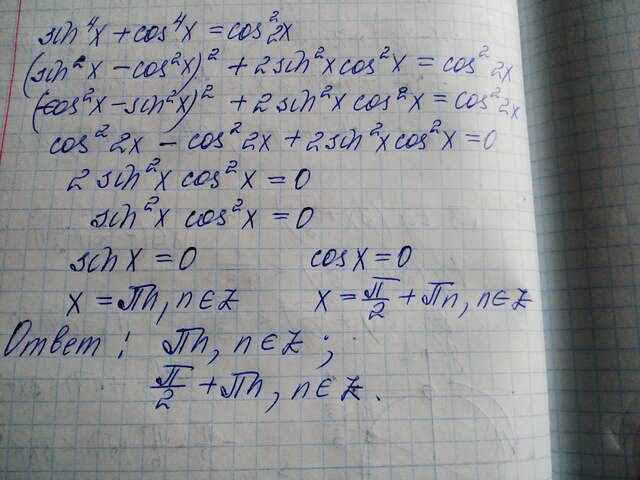 sin⁴x + cos⁴x = cos²2x
(sin²x - cos²x)² + 2sin²x cos²x = cos²2x
(cos²x - sin²x)² + 2sin²x cos²x = cos²2x
cos²2x - cos²2x + 2sin²x cos²x = 0
2 sin²x cos²x = 0
sin²x cos²x = 0
sin x = 0 cos x = 0
x = πn, n ∈ Z x = π/2 + πn, n ∈ Z
Ответ: πn, n ∈ Z;
π/2 + πn, n ∈ Z.